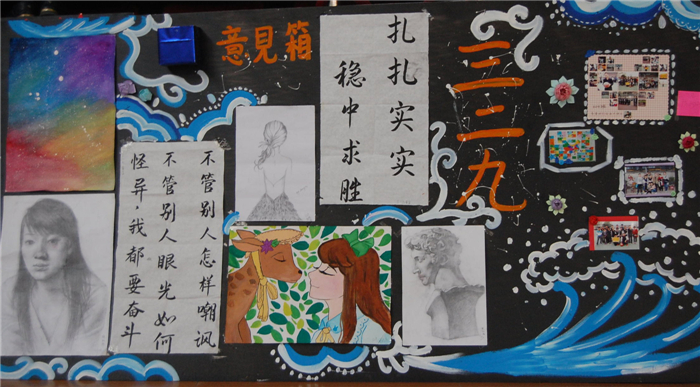 意見箱
扎扎实实
稳中求胜
三二九
不管别人怎样嘲讽
不管别人眼光如何
怪异，我都要奋斗